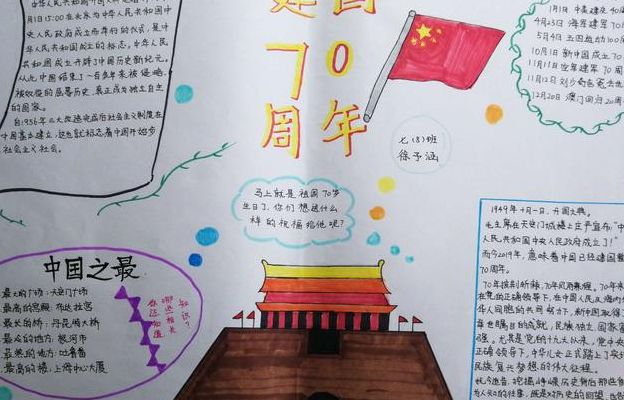 1月1日15:00在北京为中华人民共和国中
央人民政府成立而举行的仪式,是中
华人民共和国成立的标志,中华人
民共和国成立开辟了中国历史新纪元。
从此中国结束了一百多年来被侵略,
被奴役的屈辱历史,真正成为独立自主
的国家。
自1956年三大改造完成后社会主义制度在
中国基本建立,这也就标志着中国开始步
社会主义社会。
建国
70
周年
4月23日 海军建军70
5月4日 五四运动100
10月1日 新中国成立70
11月11日 空军建军70周
12月20日 澳门回归20周年
七(8)班
徐予涵
马上就是祖国70岁
生日了,你们想送什么
样的祝福给他呢?
中国之最
最大的广场:天安门广场
最高的宫殿:布达拉宫
最长的桥:丹昆特大桥
最冷的地方:根河市
最热的地方:吐鲁番
最高的楼:上海中心大厦
你还知道
哪些相关
知识?
1949年十月一日,开国大典。
毛主席在天安门城楼上庄严宣布:“中
人民共和国中央人民政府成立了!”
而今2019年,意味着中国已经建国整
70周年。
70年披荆斩棘,70年风雨兼程。70年来
在党的正确领导下,在中国人民及海内外
华人同胞的共同努力下,新中国取得了
举世瞩目的成就,民族独立,国家富
强。尤其是党的十九大以来,党中央
正确领导下,中华儿女正踏上了实现
民族复兴梦想的伟大征程。